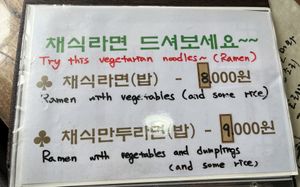 채식라면 드셔보세요~~
Try this vegetarian noodles~ (Ramen)
♣ 채식라면(밥) - 8,000원
Ramen with vegetables (and some rice)
♣ 채식만두라면(밥) - 9,000원
Ramen with vegetables and dumplings
(and some rice)